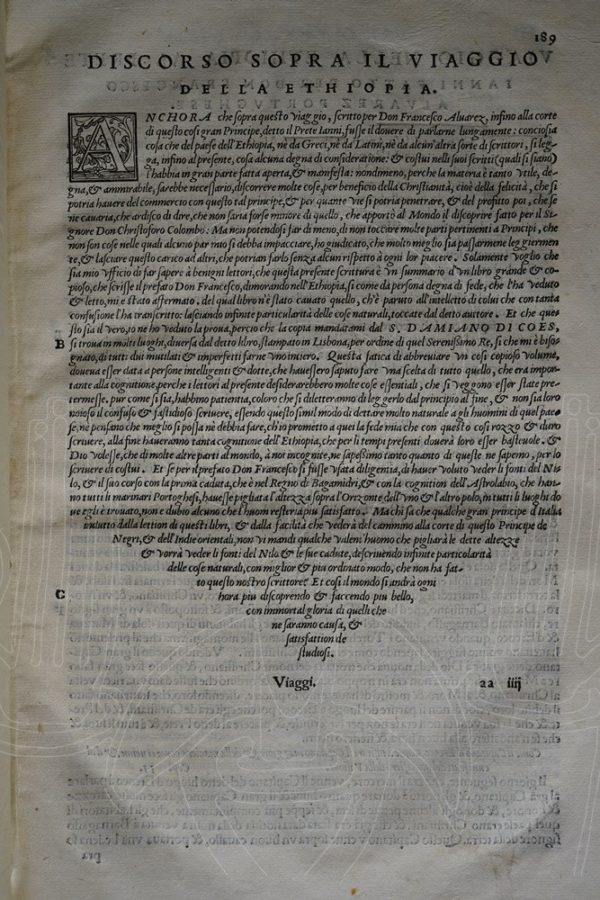 189
DISCORSO SOPRA IL VIAGGIO
DELLA ETHIOPIA.
ANCHORA che sopra questo viaggio, scritto per Don Francesco Aluarez, infino alla corte
di questo cosi gran Principe, detto il Prete Ianni, fusse il douere di parlarne lungamente: conciosia
cosa che del paese dell'Ethiopia, nè da Greci, nè da Latini, nè da alcun'altra sorte di scrittori, si leg-
ga, infino al presente, cosa alcuna degna di consideratione: & costui nelli suoi scritti (quali si siano)
l'habbia in gran parte fatta aperta, & manifesta: nondimeno, perche la materia è tanto vtile, de-
gna, & ammirabile, sarebbe necessario, discorrere molte cose, per beneficio della Christianità, cioè della felicità, che si
potria hauere del commercio con questo tal principe, & per quante vie si potria penetrare, & del profitto poi, che se
ne cauaria, che ardisco di dire, che non saria forse minore di quello, che apportò al Mondo il discoprire fatto per il Si-
gnore Don Christoforo Colombo: Ma non potendosi far di meno, di non toccare molte parti pertinenti a Principi, che
non son cose nelle quali alcuno par mio si debba impacciare, ho giudicato, che molto meglio sia passarmene leggiermen
te, & lasciare questo carico ad altri, che potrian farlo senza alcun rispetto à ogni lor piacere. Solamente voglio che
sia mio vfficio di far sapere à benigni lettori, che questa presente scrittura è vn summario d'vn libro grande & co-
pioso, che scrisse il prefato Don Francesco, dimorando nell'Ethiopia, si come da persona degna di fede, che l'ha veduto
& letto, mi è stato affermato. del qual libro n'è stato cauato quello, ch'è paruto all'intelletto di colui che con tanta
confusione l'ha transcritto: lasciando infinite particularità delle cose naturali, toccate dal detto autore. Et che que-
sto sia il vero, io ne ho veduto la proua, percio che la copia mandatami dal S. DAMIANO DI COES,
B si troua in molti luoghi, diuersa dal detto libro, stampato in Lisbona, per ordine di quel Serenissimo Re, si che mi è biso-
gnato, di tutti dui mutilati & imperfetti farne vno intiero. Questa fatica di abbreuiare vn cosi copioso volume,
doueua esser data a persone intelligenti & dotte, che hauessero saputo fare vna scelta di tutto quello, che era impor-
tante alla cognitione, perche i lettori al presente desiderarebbero molte cose essentiali, che si veggono esser state pre-
termesse. pur come si sia, habbino patientia, coloro che si diletteranno di leggerlo dal principio al fine, & non sia loro
noioso il confuso & fastidioso scriuere, essendo questo simil modo di dettare molto naturale a gli huomini di quel pae-
se, ne pensano che meglio si possa nè debbia fare, ch'io prometto a quei la fede mia che con questo cosi rozzo & duro
scriuere, alla fine haueranno tanta cognitione dell'Ethiopia, che per li tempi presenti douerà loro esser basteuole. &
Dio volesse, che di molte altre parti al mondo, à noi incognite, ne sapessimo tanto quanto di queste ne sapemo, per lo
scriuere di costui. Et se per il prefato Don Francesco si fusse vsata diligentia, di hauer voluto veder li fonti del Ni-
lo, & il suo corso con la prima caduta, che è nel Regno di Bagamidri, & con la cognition dell'Astrolabio, che han-
no tutti li marinari Portoghesi, hauesse pigliata l'altezza sopra l'Orizonte dell'vno & l'altro polo, in tutti li luoghi do
ue egli è trouato, non è dubio alcuno che l'huom resteria piu satisfatto. Ma chi sa che qualche gran principe d'Italia
inuitato dalla lettion di questi libri, & dalla facilità che vederà del cammino alla corte di questo Principe de
Negri, & dell'Indie orientali, non vi mandi qualche valent'huomo che pigliarà le dette altezze
& vorrà veder li fonti del Nilo & le sue cadute, descriuendo infinite particularità
delle cose naturali, con miglior & piu ordinato modo, che non ha fat-
to questo nostro scrittore? Et cosi il mondo si andrà ogni
C hora piu discoprendo & faccendo piu bello,
con immortal gloria di quelli che
ne saranno causa, &
satisfattion de
studiosi.
Viaggi. aa iiij